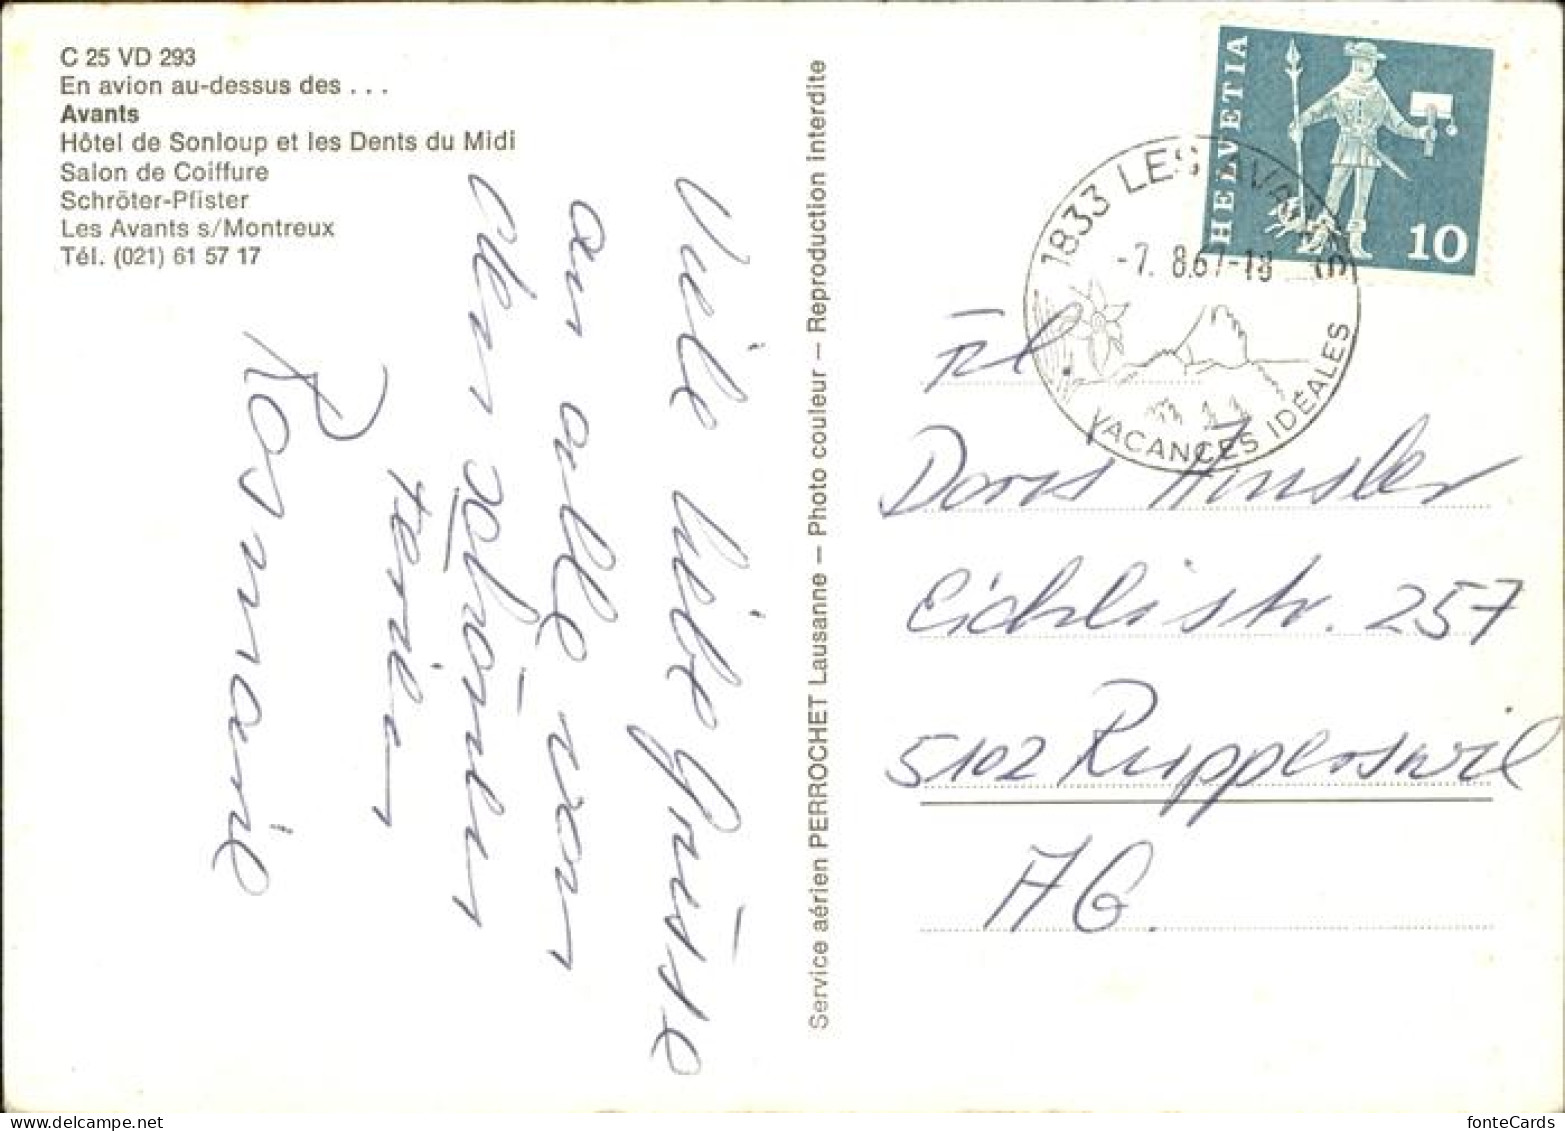 C 25 VD 293
En avion au-dessus des . . .
Avants
Hôtel de Sonloup et les Dents du Midi
Salon de Coiffure
Schröter-Pfister
Les Avants s/Montreux
Tél. (021) 61 57 17
Viele liebe Grüsse
an alle von
den schönen
Ferien
Rosmarie
Service aérien PERROCHET Lausanne — Photo couleur — Reproduction interdite
HELVETIA
10
1833 LES AVANTS
-7. 8.67-18
VACANCES IDÉALES
Frl.
Doris Amsler
Eichlistr. 257
5102 Rupperswil
AG.
fonteCards